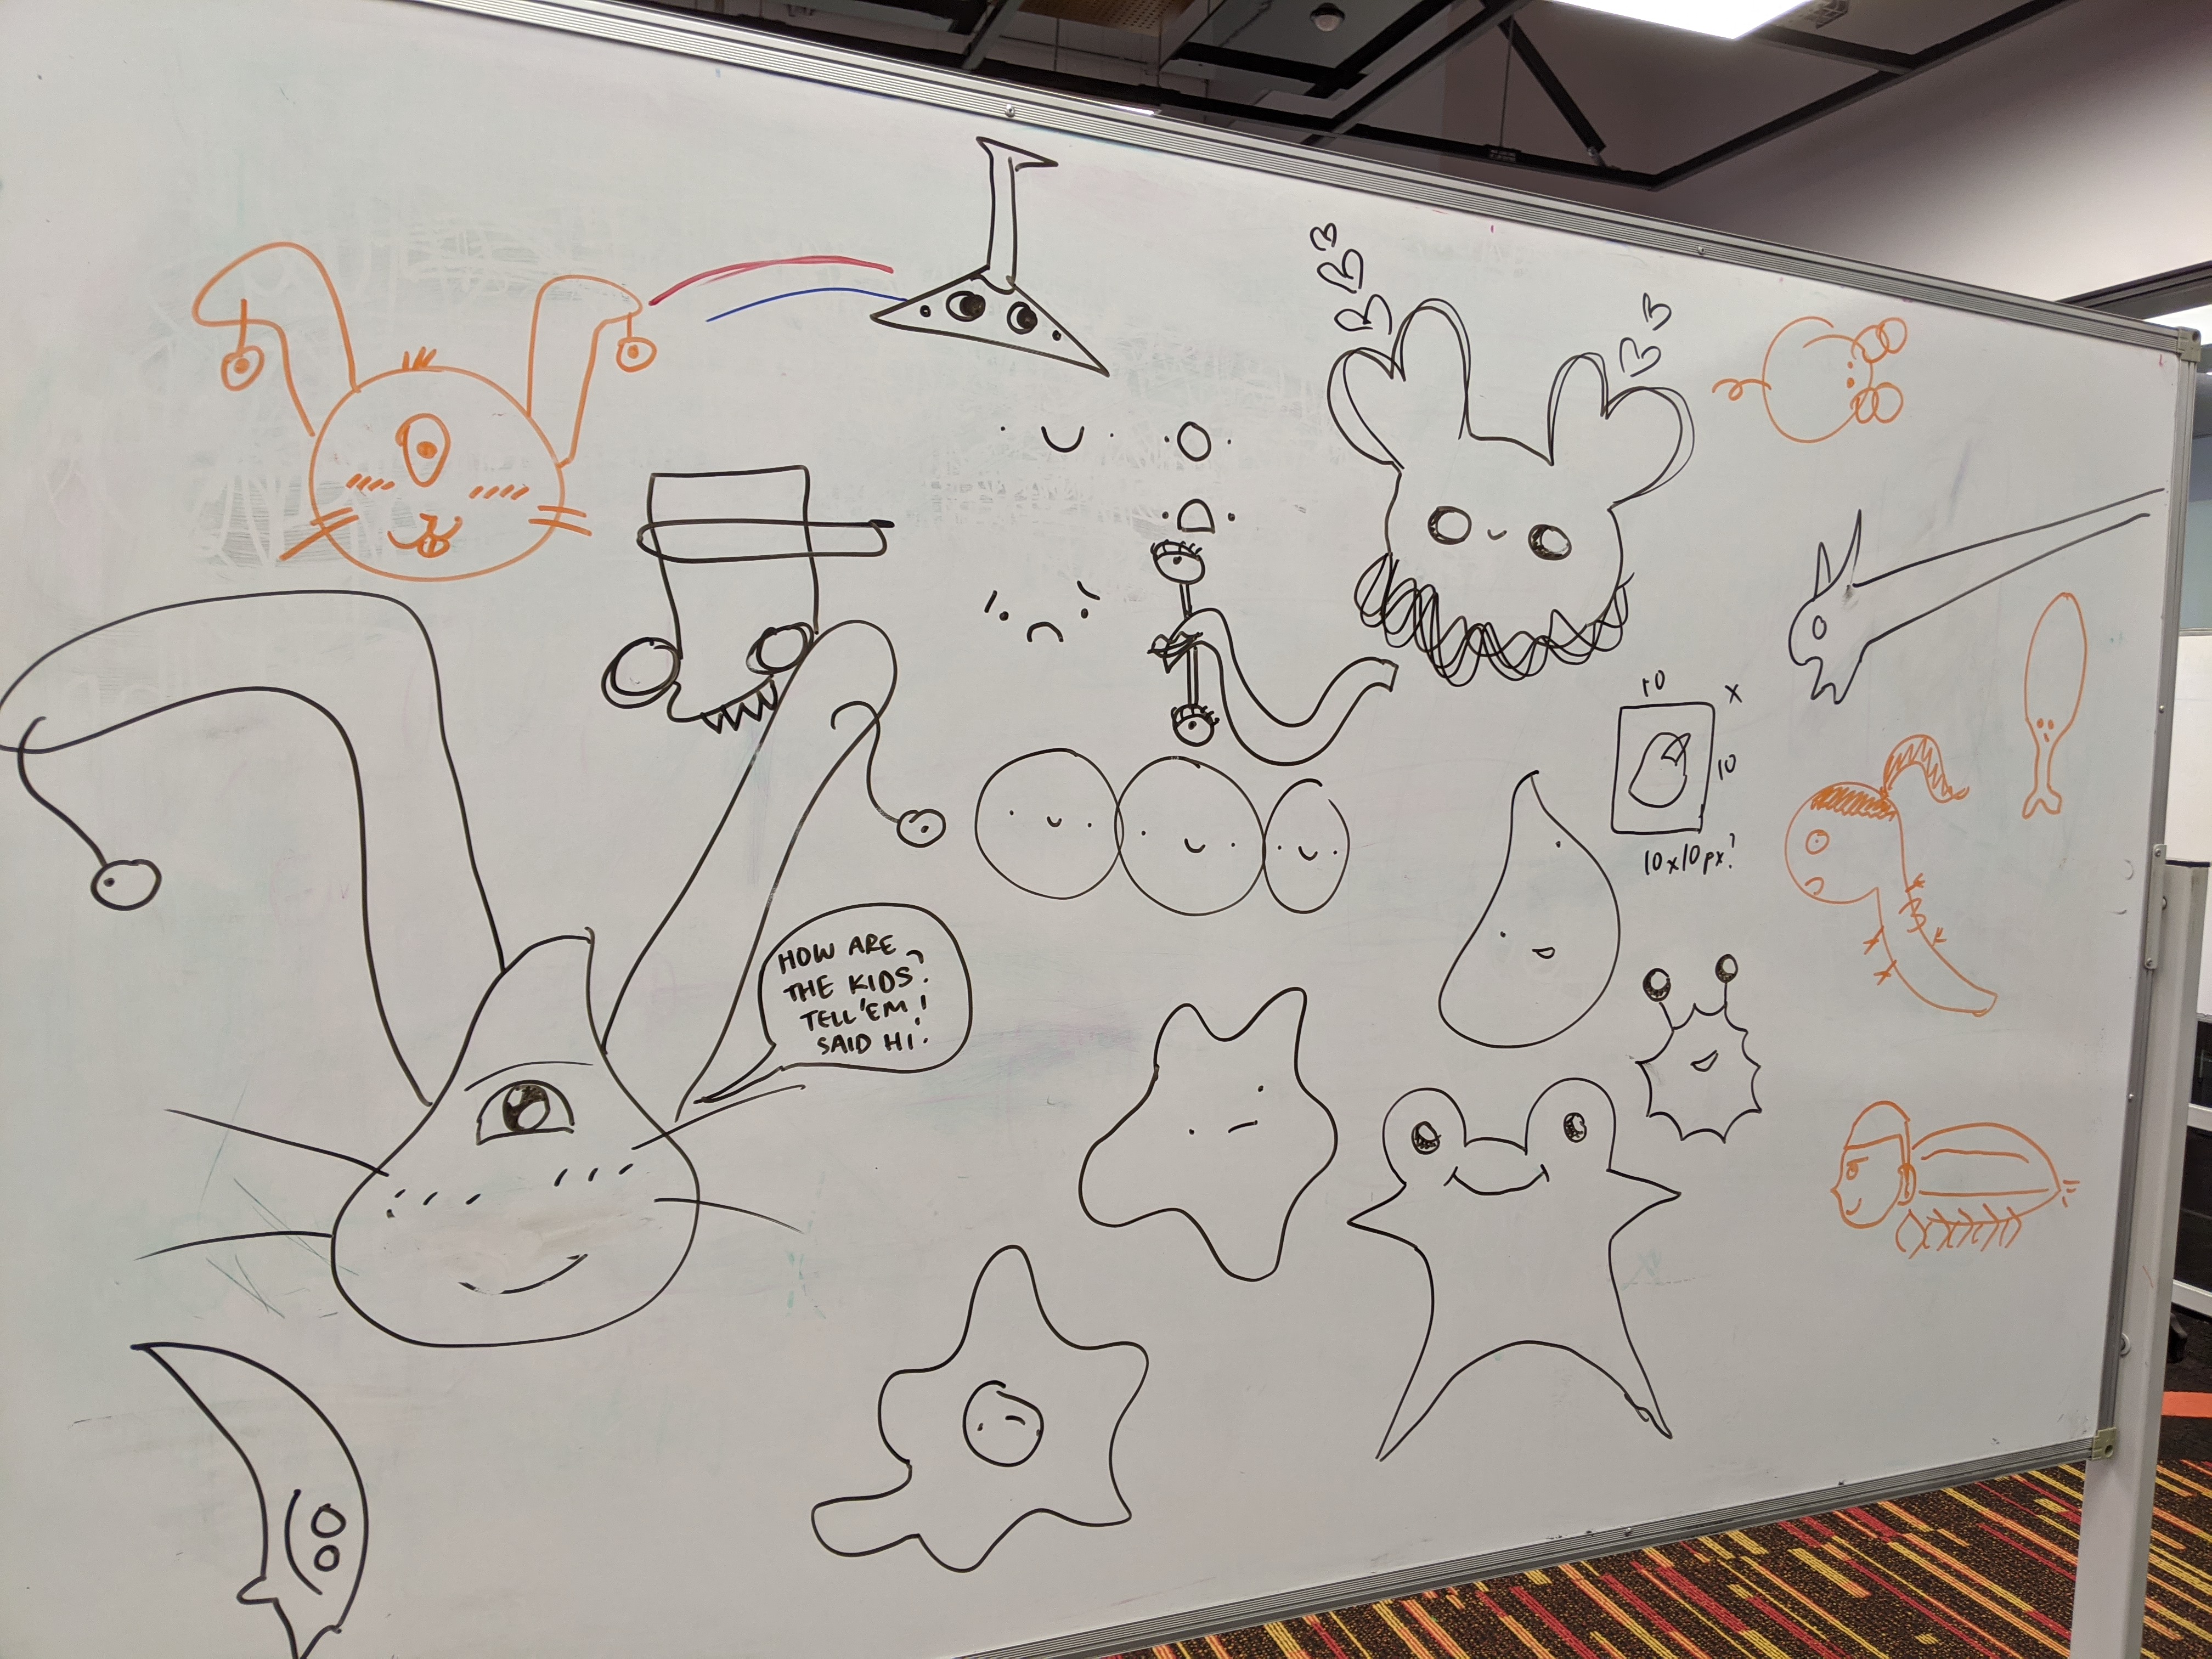 HOW ARE
THE KIDS?
TELL 'EM I
SAID HI!
10
x
10
10x10px?